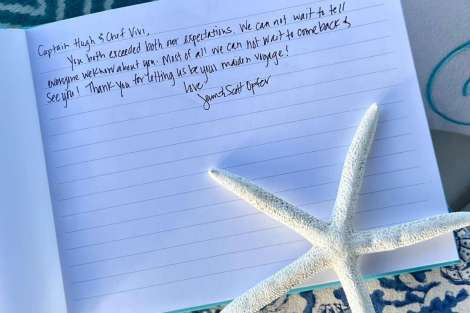 Captain Hugh & Chef Vivi,
You both exceeded both our expectations. We can not wait to tell
everyone we know about you. Most of all we can not wait to come back &
see you! Thank you for letting us be your maiden voyage!
Love
& Scott Opfer